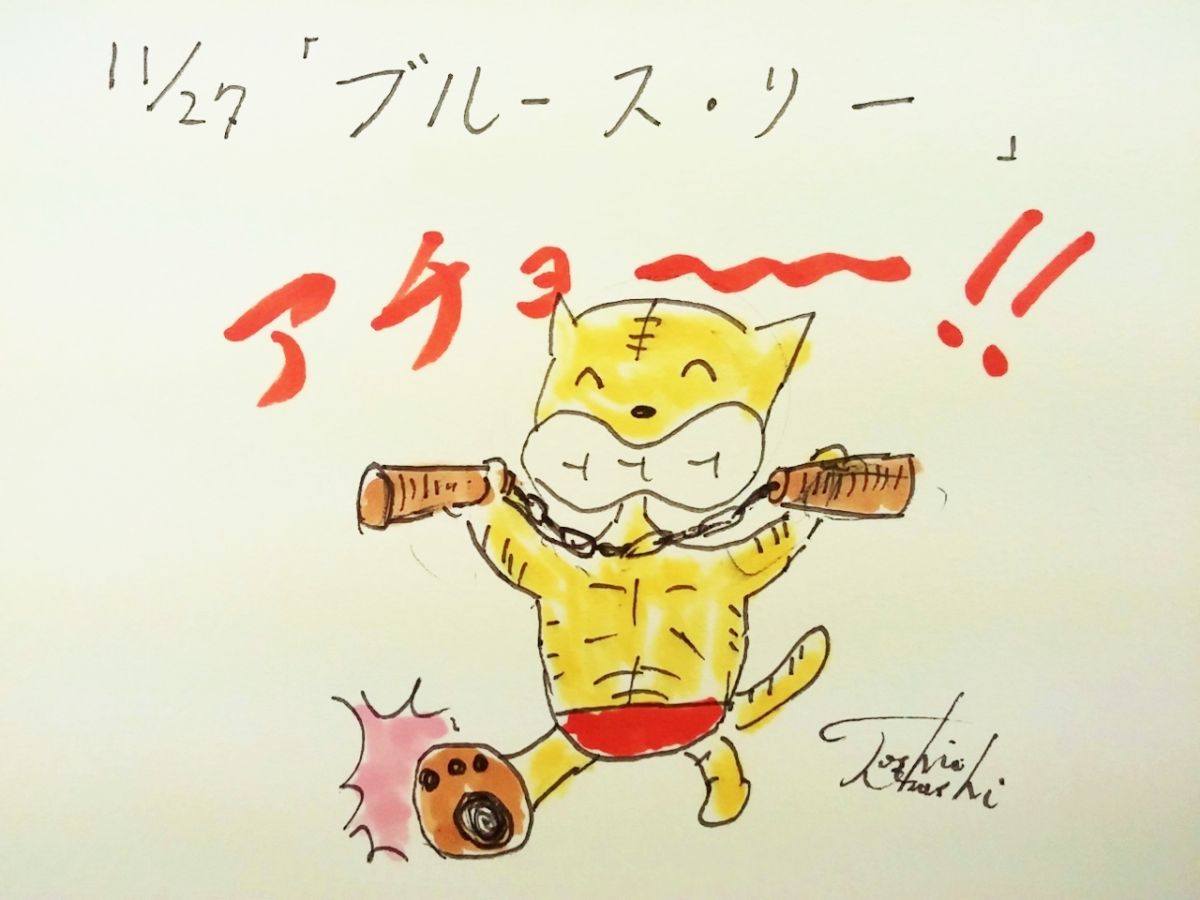 11/27「ブルース・リー」
アチョ〜〜!!
Toshio